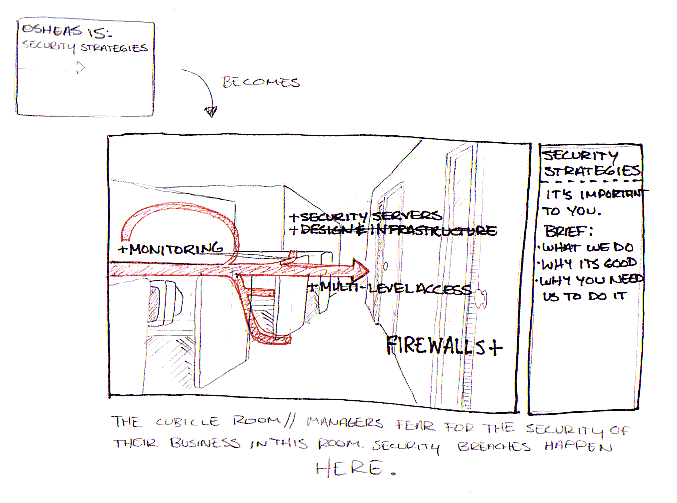 OSHEAS IS:
SECURITY STRATEGIES
BECOMES
+SECURITY SERVERS
+DESIGN & INFRASTRUCTURE
+MONITORING
+MULTI-LEVEL ACCESS
FIREWALLS+
SECURITY
STRATEGIES
IT'S IMPORTANT
TO YOU.
BRIEF:
·WHAT WE DO
·WHY ITS GOOD
·WHY YOU NEED
US TO DO IT
THE CUBICLE ROOM// MANAGERS FEAR FOR THE SECURITY OF
THEIR BUSINESS IN THIS ROOM. SECURITY BREACHES HAPPEN
HERE.